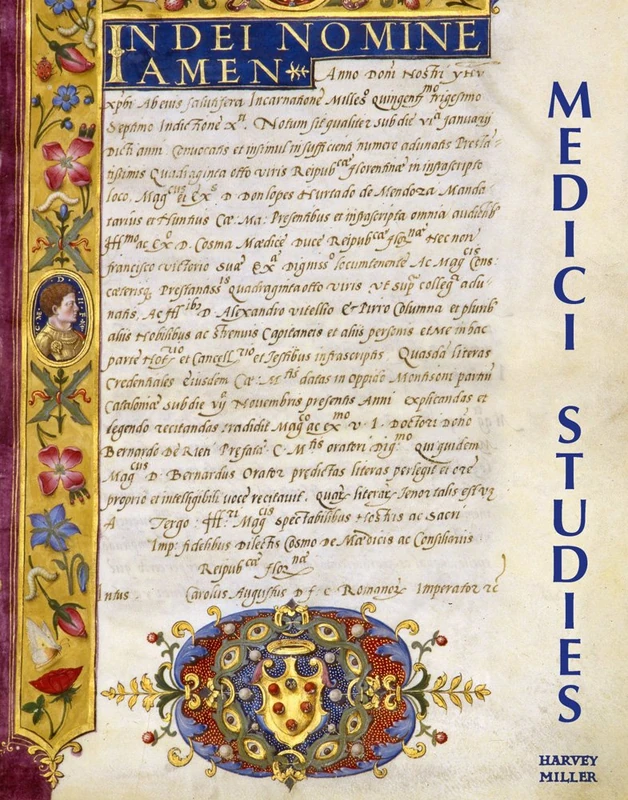 IN DEI NOMINE
AMEN
Anno Domi Nostri yhu
xpbi Ab eius salutifera Incarnatione Milleso quingentmo trigesimo
Septimo Indictione Xa. Notum sit qualiter sub die via Januarij
Dicti anni Convocatis et insimul in sufficienti numero adunatis Presta-
tissimis Quadraginta otto viris Reipubcae florentinae in infrascripto
loco. Magcus et Exs D Don lopes Hurtado de Mendoza Manda
tarius et Nuntius Cae. Ma. Presentibus et infrascripta omnia audientib
Illmo ac Exo D. Cosma Maedice Duce Reipubcae flornae Nec non
francisco victorio Suae Exa Digniss locumtenente Ac Magcis Cons:
caeterisq. Prestantassis Quadraginta otto viris vt sup collegas adu-
natis, Ac Illibs D. Alexandro vitellio et Pirro Columna et plurib
aliis Nobilibus ac strenuis Capitaneis et aliis personis et Me in hac
parte Notrio et Cancellrio et Testibus infrascriptis Quasda literas
Credentiales Eiusdem Cae. Mtis datas in Oppido Montisoni partiu
Cataloniae Sub die vij Novembris presentis Anni explicandas et
legendo recitandas tradidit Magco ac exmo v. I. Doctori Dono
Bernardo De Rieti Prefata C. Mtis oratori Digmo Qui quidem
Magcus D. Bernardus Orator predictas literas perlegit et ore
proprio et intelligibili voce recitavit. Quar literar Tenor talis est vz
A Tergo: Illri Magcis spectabilibus Nostris ac Sacri
Imp: fidelibus Dilectis Cosmo de Maedicis ac Consiliariis
Reipubcae flornae
Intus. Carolus Augustus D f c Romanor Imperator zc
MEDICI STUDIES
HARVEY
MILLER